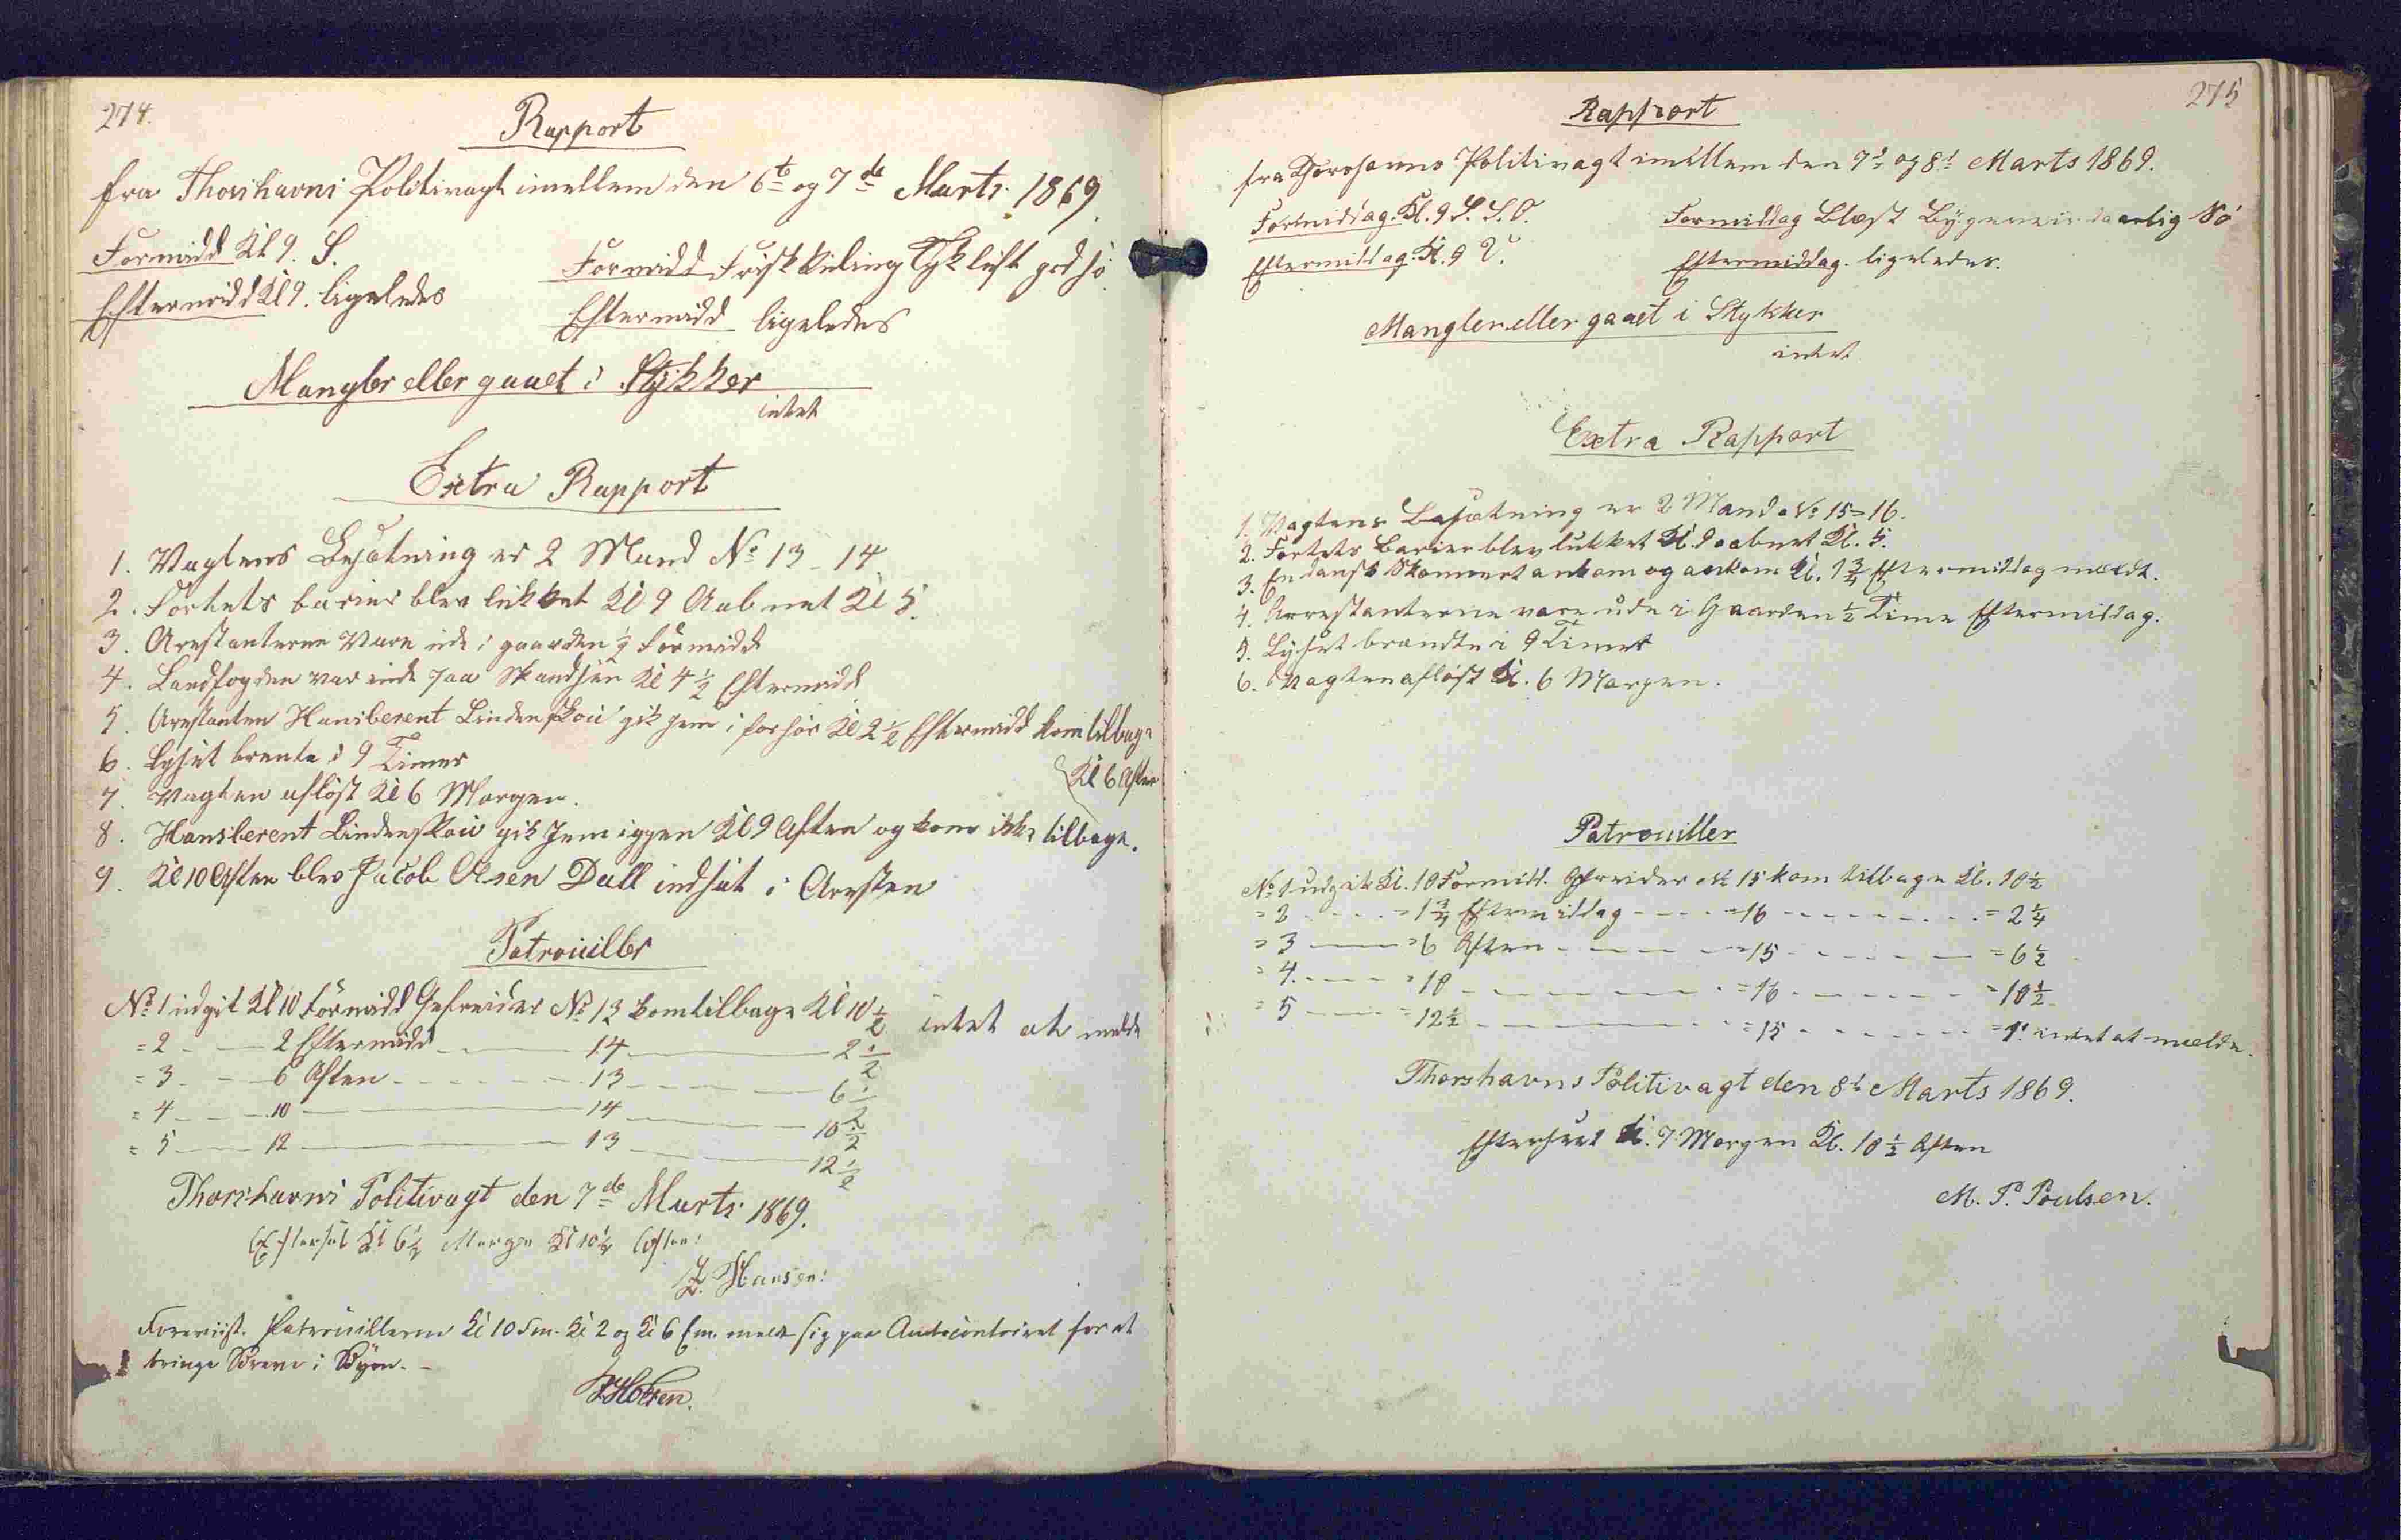 274.
Rapport
fra Thorshavns Politivagt imellem den 6te og 7de Marts 1869.
Formidd Kl 9. S.
Eftermidd Kl 9. ligeledes
Formidd Frisk Kuling Tyk luft god sø.
Eftermidd ligeledes
Mangler eller gaaet i Stykker
intet
Extra Rapport
1. Vagtens Besætning er 2 Mand No 13 - 14
2. Fortets barier blev lukket Kl 9 Aabnet Kl 5.
3. Arestanterne Vare ude i gaarden ½ Formidd
4. Landfogden var inde paa Skandsen Kl 4 ½ Eftermidd
5. Arestanten Hansberent Lindenskou gik hem i forhör Kl 2 ½ Eftermidd kom tilbage
Kl 6 Aften
6. Lyset brente i 9 Timer
7. Vagten aflöst Kl 6 Morgen.
8. Hansberent Lindenskou gik hem iggen Kl 9 Aften og kom ikke tilbage.
9. Kl 10 Aften blev Jacob Olsen Dall indsat i Aresten
Patrouiller
No 1 udgik Kl 10 Formidd Gefreider No 13 kom tilbage Kl 10 ½ intet at melde
= 2 - 2 Eftermidd - 14 - 2 ½
= 3 - 6 Aften - 13 - 6 ½
= 4 - 10 - 14 - 10 ½
= 5 - 12 - 13 - 12 ½
Thorshavns Politivagt den 7de Marts 1869.
Eftersét Kl 6½ Morgen Kl 10½ Aften:
Z. Hansen:
Foreviist. Patrouillerne Kl 10 Fm. Kl 2 og Kl 6 Em. melde sig paa Amtscontoiret for at
bringe Breve i Byen. -
275
Rapport
fra Thorshavns Politivagt imellem den 7d og 8d Marts 1869.
Formiddag. Kl. 9 S. S. O.
Eftermiddag. Kl. 9 V.
Formiddag Blæst Bygeveir daarlig Sø
Eftermiddag. ligeledes.
Mangler eller gaaet i Stykker
intet
Extra Rapport
1. Vagtens Besætning er 2 Mand No 15 = 16.
2. Fortets Barier blev lukket Kl. 9 aabnet Kl. 5.
3. En dansk Skonnert ankom og ankom Kl. 1 ¾ Eftermiddag meldt.
4. Arrestanterne vare ude i Gaarden ½ Time Eftermiddag.
5. Lyset brændte i 9 Timer
6. Vagten aflöst Kl. 6 Morgen.
Patrouiller
No 1 udgik Kl. 10 Formidd. Gefreider No 15 kom tilbage Kl. 10 ½
= 2 - = 1 ¾ Eftermiddag - = 16 - = 2 ¼
= 3 - = 6 Aften - = 15 - = 6 ½
= 4 - = 10 - = 16 - = 10 ½
= 5 - = 12 ½ - = 15 - = 1. intet at melde.
Thorshavns Politivagt den 8d Marts 1869.
Efterseet Kl. 7 Morgen Kl. 10 ½ Aften
M. P. Poulsen.